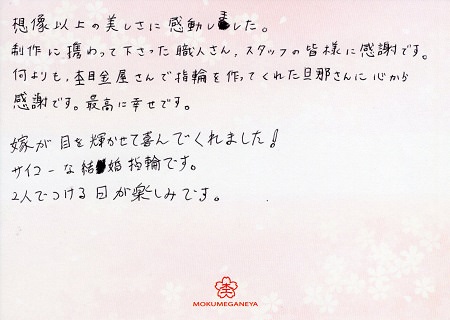 想像以上の美しさに感動しました。
制作に携わって下さった職人さん、スタッフの皆様に感謝です。
何よりも、杢目金屋さんで指輪を作ってくれた旦那さんに心から
感謝です。最高に幸せです。
嫁が目を輝かせて喜んでくれました！
サイコーな結婚指輪です。
2人でつける日が楽しみです。
杢
MOKUMEGANEYA